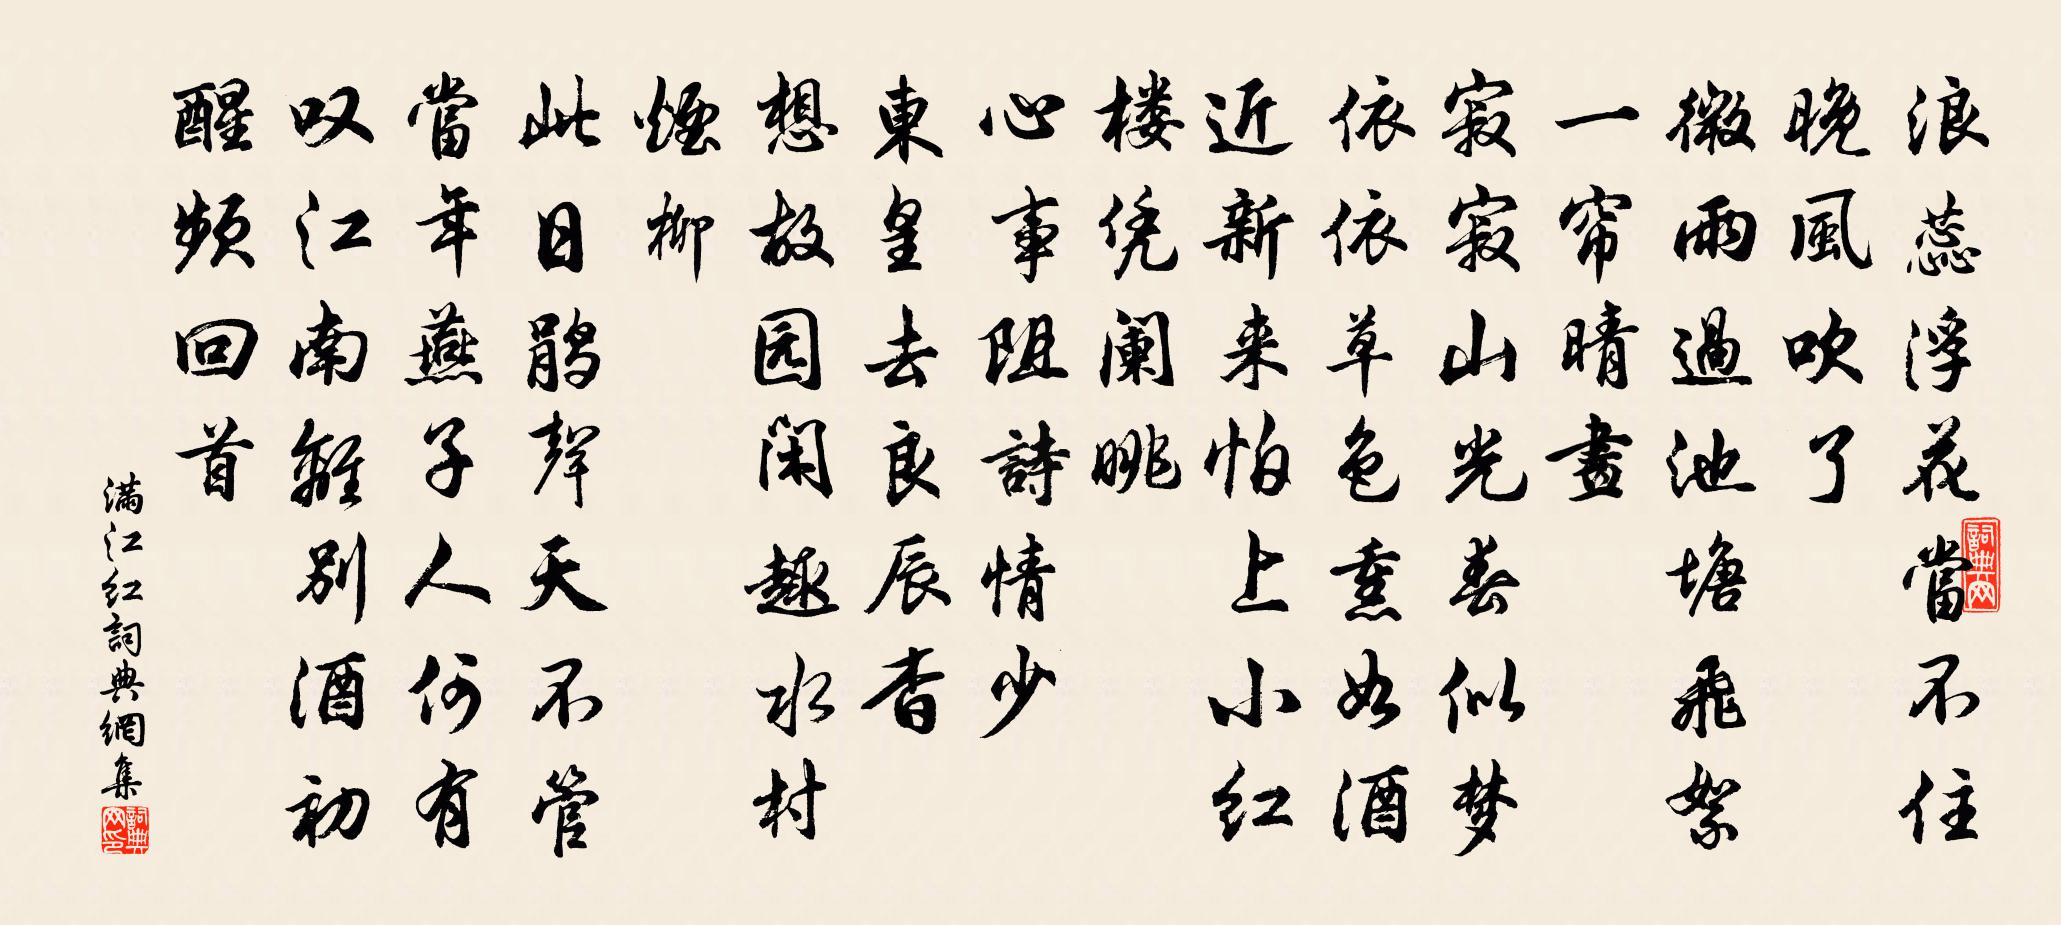 浪蕊浮花當不住
晚風吹了
微雨過池塘飛絮
一帘晴晝
寂寂山光春似梦
依依草色熏如酒
近新来怕上小红
楼凭阑眺
心事阻詩情少
東皇去良辰杳
想故园闲趣水村
煙柳
此日鹃聲天不管
當年燕子人何有
叹江南離別酒初
醒频回首
满江红詞典網集
詞典网
詞典网印